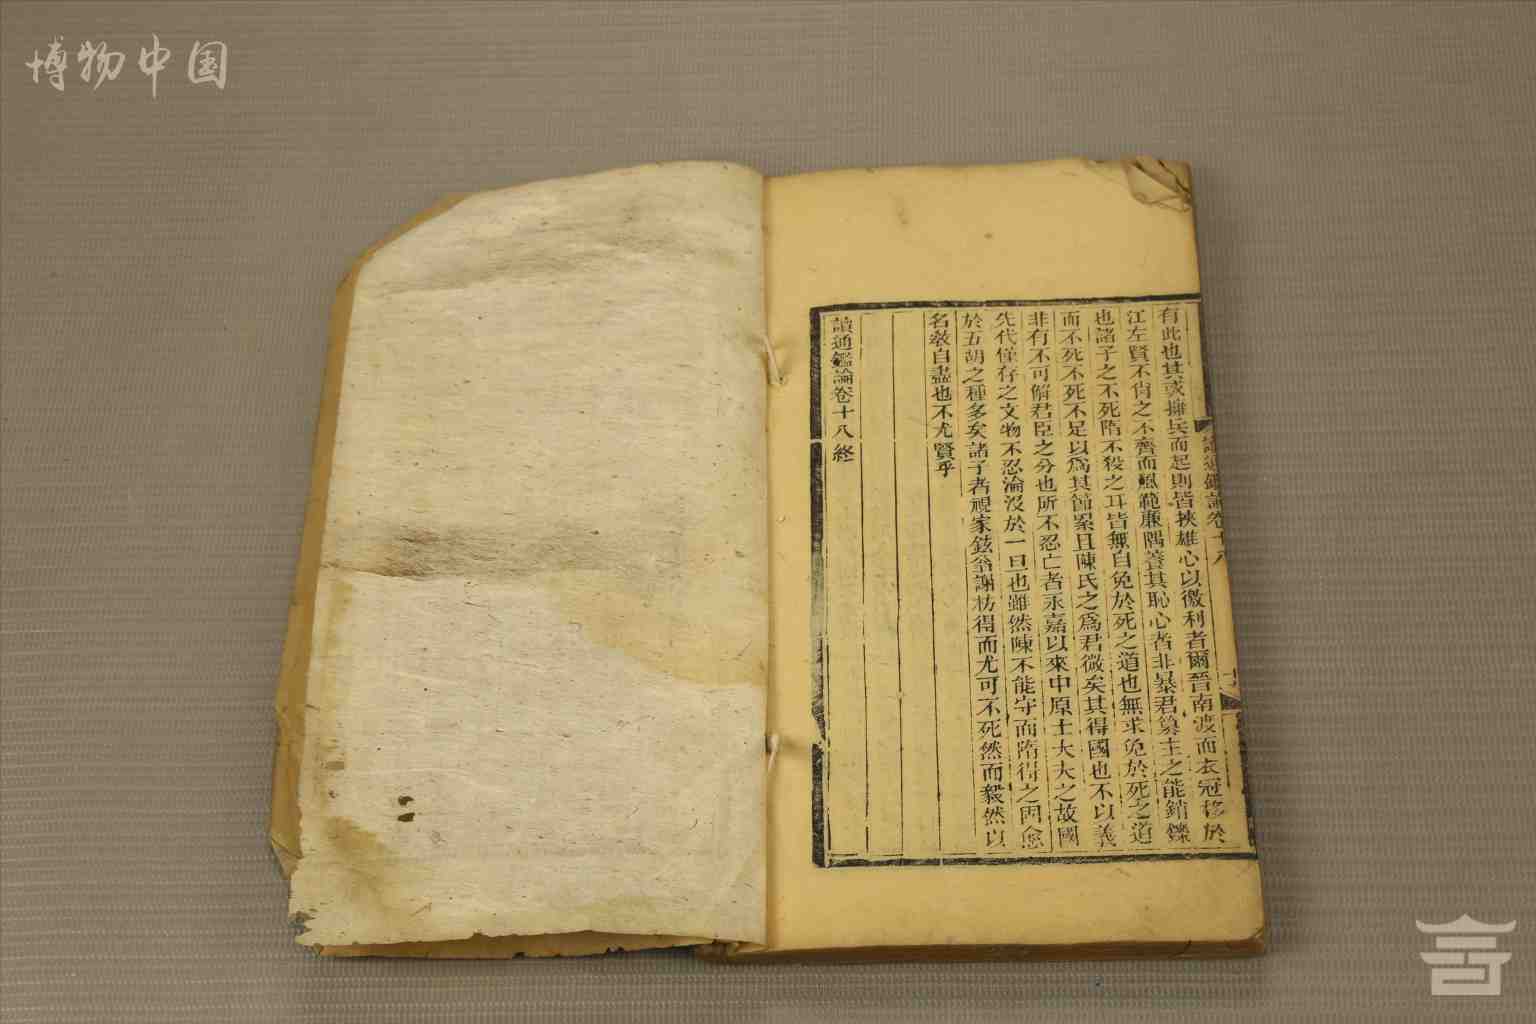 博物中国
有此也其或擁兵而起則皆挾雄心以徼利者爾晉南渡而衣冠移於
江左賢不肖之不齊而風範廉隅養其恥心者非暴君篡主之能銷鑠
也諸子之不死隋不殺之耳皆無自免於死之道也無求免於死之道
而不死不死不足以爲其節累且陳氏之爲君微矣其得國也不以義
非有不可解君臣之分也所不忍亡者永嘉以來中原士大夫之故國
先代僅存之文物不忍淪沒於一旦也雖然陳不能守而隋得之固愈
於五胡之種多矣諸子者視家鉉翁謝枋得而尤可不死然而毅然以
名教自盡也不尤賢乎
讀通鑑論卷十八終
讀通鑑論卷十八